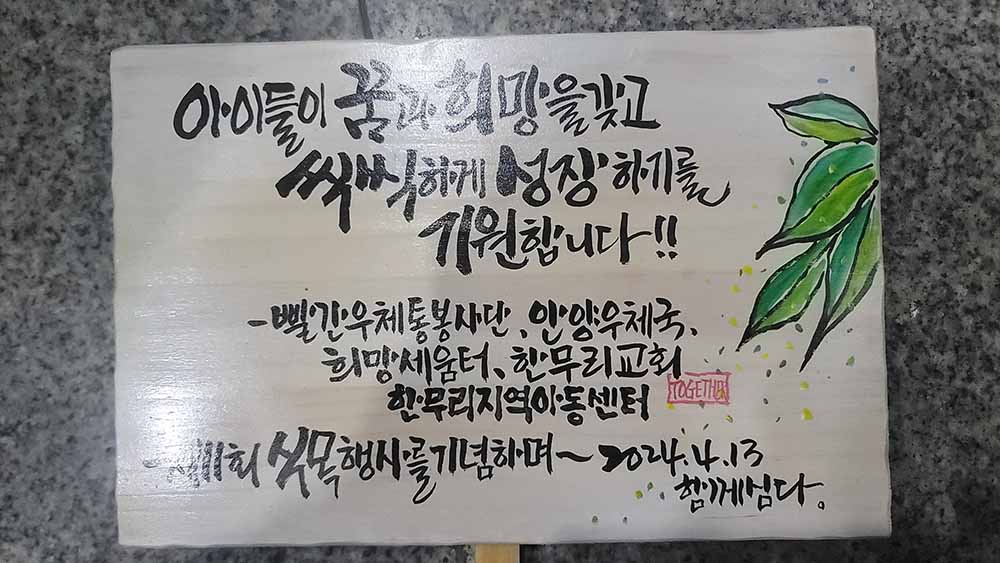 아이들이 꿈과 희망을 갖고
씩씩하게 성장하기를
기원합니다!!
- 빨간우체통봉사단、안양우체국、
희망세움터、한무리교회
TOGETHER
한무리지역아동센터
제11회 식목행사를 기념하며~ 2024.4.13
함께심다。